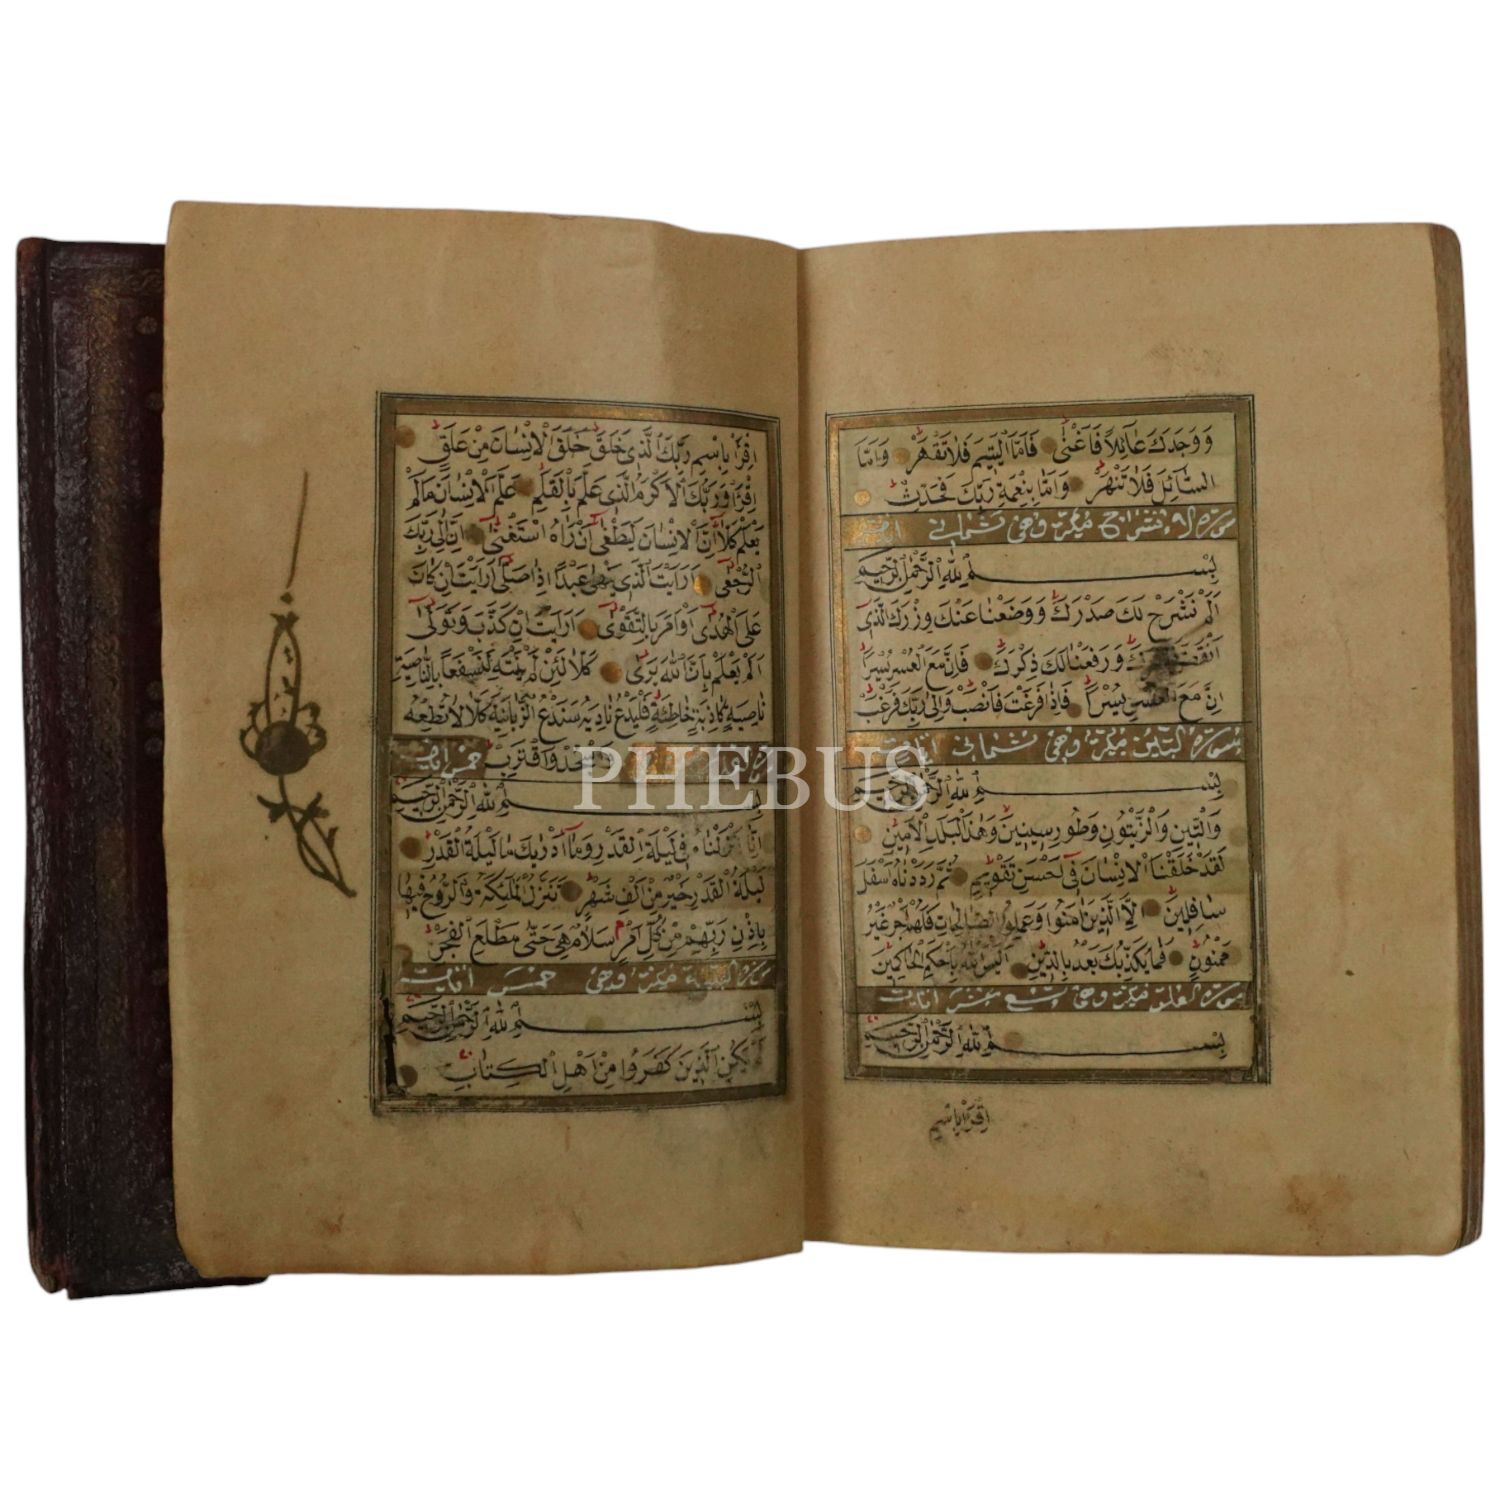 وَوَجَدَكَ عَآئِلاً فَاَغْنٰى فَاَمَّا الْيَتٖيمَ فَلَا تَقْهَرْ وَاَمَّا
السَّآئِلَ فَلَا تَنْهَرْ وَاَمَّا بِنِعْمَةِ رَبِّكَ فَحَدِّثْ
سورة الانشراح مكية وهي ثماني آيات
بِسْمِ اللهِ الرَّحْمٰنِ الرَّحٖيمِ
اَلَمْ نَشْرَحْ لَكَ صَدْرَكَ وَوَضَعْنَا عَنْكَ وِزْرَكَ الَّذٖى
اَنْقَضَ وَرَفَعْنَا لَكَ ذِكْرَكَ فَاِنَّ مَعَ الْعُسْرِ يُسْرًا
اِنَّ مَعَ الْعُسْرِ يُسْرًا فَاِذَا فَرَغْتَ فَانْصَبْ وَاِلٰى رَبِّكَ فَرْغَبْ
سورة التين مكية وهي ثماني آيات
بِسْمِ اللهِ الرَّحْمٰنِ الرَّحٖيمِ
وَالتّٖينِ وَالزَّيْتُونِ وَطُورِ سٖينٖينَ وَهٰذَا الْبَلَدِ الْاَمٖينِ
لَقَدْ خَلَقْنَا الْاِنْسَانَ فٖٓى اَحْسَنِ تَقْوٖيمٍ ثُمَّ رَدَدْنَاهُ اَسْفَلَ
سَافِلٖينَ اِلَّا الَّذٖينَ اٰمَنُوا وَعَمِلُوا الصَّالِحَاتِ فَلَهُمْ اَجْرٌ غَيْرُ
مَمْنُونٍ فَمَا يُكَذِّبُكَ بَعْدُ بِالدّٖينِ اَلَيْسَ اللهُ بِاَحْكَمِ الْحَاكِمٖينَ
سورة العلق مكية وهي تسع عشر آيات
بِسْمِ اللهِ الرَّحْمٰنِ الرَّحٖيمِ
اِقْرَأْ بِاسْمِ
اِقْرَأْ بِاسْمِ رَبِّكَ الَّذٖى خَلَقَ خَلَقَ الْاِنْسَانَ مِنْ عَلَقٍ
اِقْرَأْ وَرَبُّكَ الْاَكْرَمُ الَّذٖى عَلَّمَ بِالْقَلَمِ عَلَّمَ الْاِنْسَانَ مَالَمْ
يَعْلَمْ كَلَّٓا اِنَّ الْاِنْسَانَ لَيَطْغٰى اَنْ رَاٰهُ اسْتَغْنٰى اِنَّ اِلٰى رَبِّكَ
الرُّجْعٰى اَرَاَيْتَ الَّذٖى يَنْهٰى عَبْدًا اِذَا صَلّٰى اَرَاَيْتَ اِنْ كَانَ
عَلَى الْهُدٰٓى اَوْ اَمَرَ بِالتَّقْوٰى اَرَاَيْتَ اِنْ كَذَّبَ وَتَوَلّٰى
اَلَمْ يَعْلَمْ بِاَنَّ اللهَ يَرٰى كَلَّا لَئِنْ لَمْ يَنْتَهِ لَنَسْفَعًا بِالنَّاصِيَةِ
نَاصِيَةٍ كَاذِبَةٍ خَاطِئَةٍ فَلْيَدْعُ نَادِيَهُ سَنَدْعُ الزَّبَانِيَةَ كَلَّا لَا تُطِعْهُ
وَاسْجُدْ وَاقْتَرِبْ خمس آيات
بِسْمِ اللهِ الرَّحْمٰنِ الرَّحٖيمِ
اِنَّٓا اَنْزَلْنَاهُ فٖى لَيْلَةِ الْقَدْرِ وَمَٓا اَدْرٰيكَ مَا لَيْلَةُ الْقَدْرِ
لَيْلَةُ الْقَدْرِ خَيْرٌ مِنْ اَلْفِ شَهْرٍ تَنَزَّلُ الْمَلٰٓئِكَةُ وَالرُّوحُ فٖيهَا
بِاِذْنِ رَبِّهِمْ مِنْ كُلِّ اَمْرٍ سَلَامٌ هِيَ حَتّٰى مَطْلَعِ الْفَجْرِ
سورة البينة مكية وهي خمس آيات
بِسْمِ اللهِ الرَّحْمٰنِ الرَّحٖيمِ
يَكُنِ الَّذٖينَ كَفَرُوا مِنْ اَهْلِ الْكِتَابِ
PHEBUS